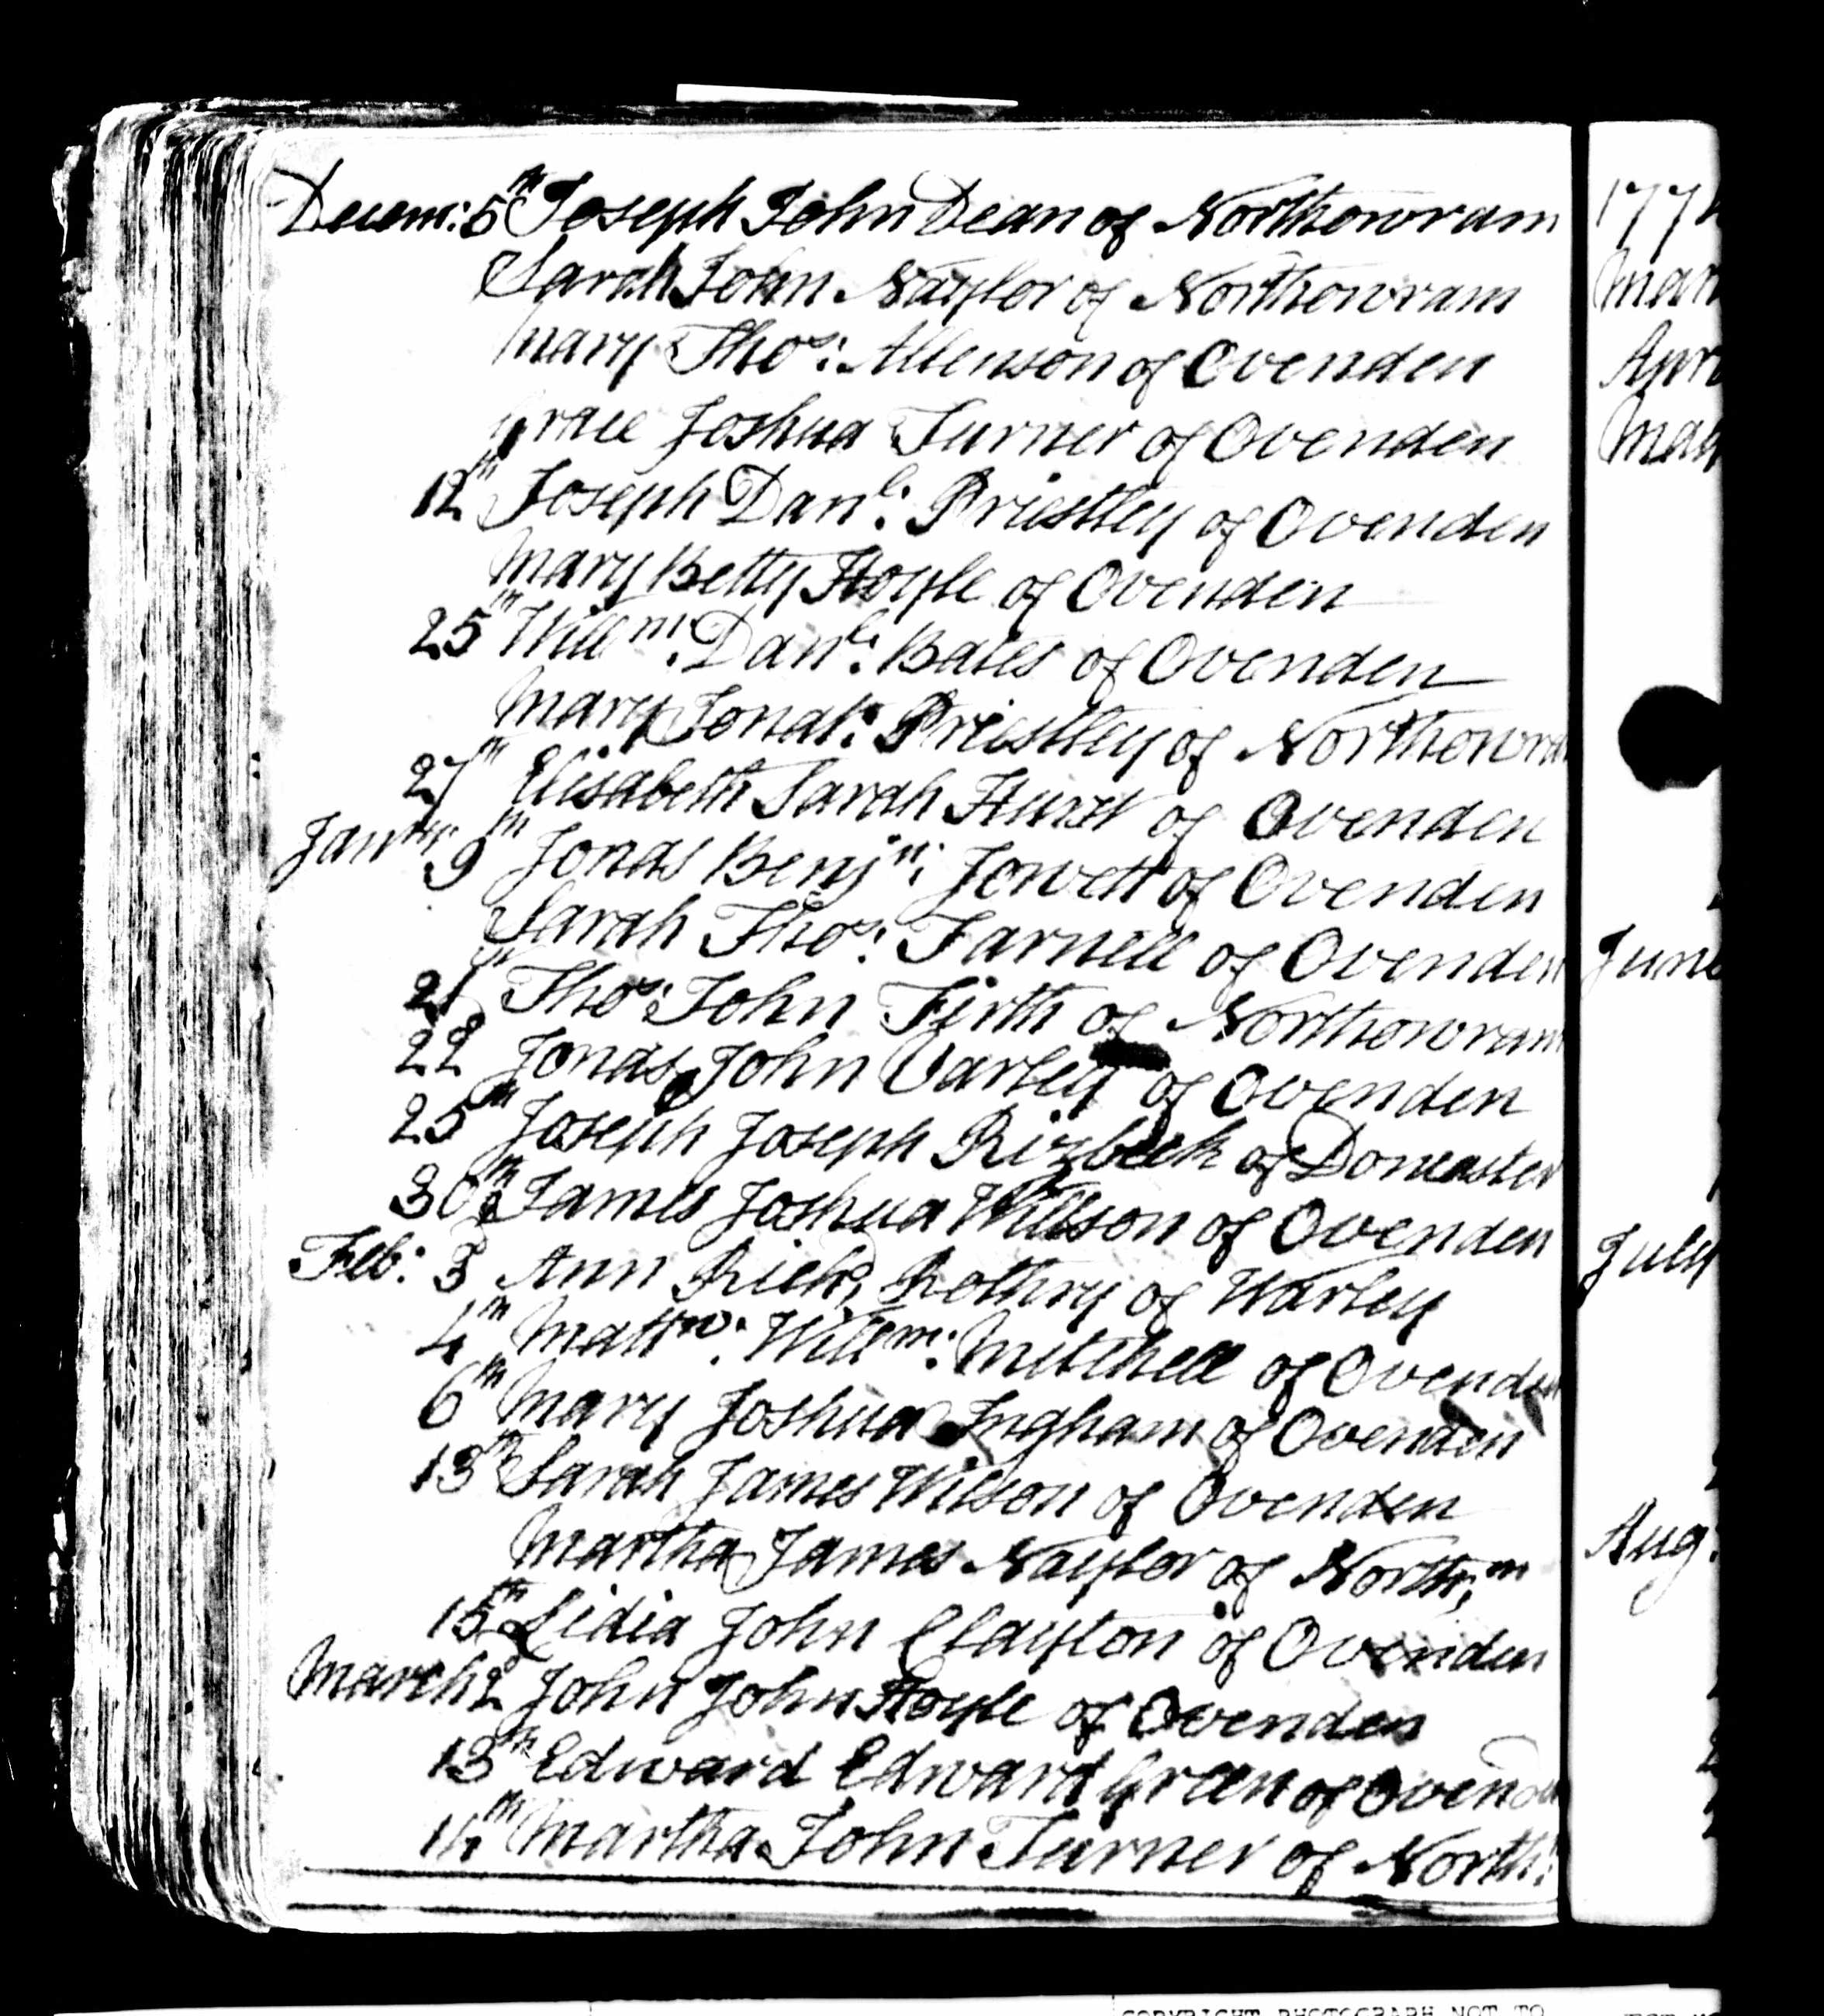 Decem: 5th Joseph John Dean of Northowram
Sarah John Naylor of Northowram
Mary Thos: Allenson of Ovenden
Grace Joshua Turner of Ovenden
12th Joseph Danl: Priestley of Ovenden
Mary Betty Hoyle of Ovenden
25th Willm: Danl: Bates of Ovenden
Mary Jonat: Priestley of Northowra
27th Elisabeth Sarah Hurst of Ovenden
9th Jonas Benjn: Jowett of Ovenden
Sarah Thos: Farnell of Ovenden
21st Thos: John Firth of Northowram
22d Jonas John Varley of Ovenden
25th Joseph Joseph of Doncaster
30th James Joshua Willson of Ovenden
Feb: 3d Ann Richd, Rothry of Warley
4th Mattw: Willm: Mitchell of Ovenden
6th Mary Joshua Ingham of Ovenden
13th Sarah James Wilson of Ovenden
Martha James Naylor of Northm
15th Lidia John Clayton of Ovenden
March 2d John John Hoyle of Ovenden
13th Edward Edward Green of Ovenden
14th Martha John Turner of North:
177
Mar
Apri
May
June
July
Aug:
COPYRIGHT PHOTOGRAPH NOT TO